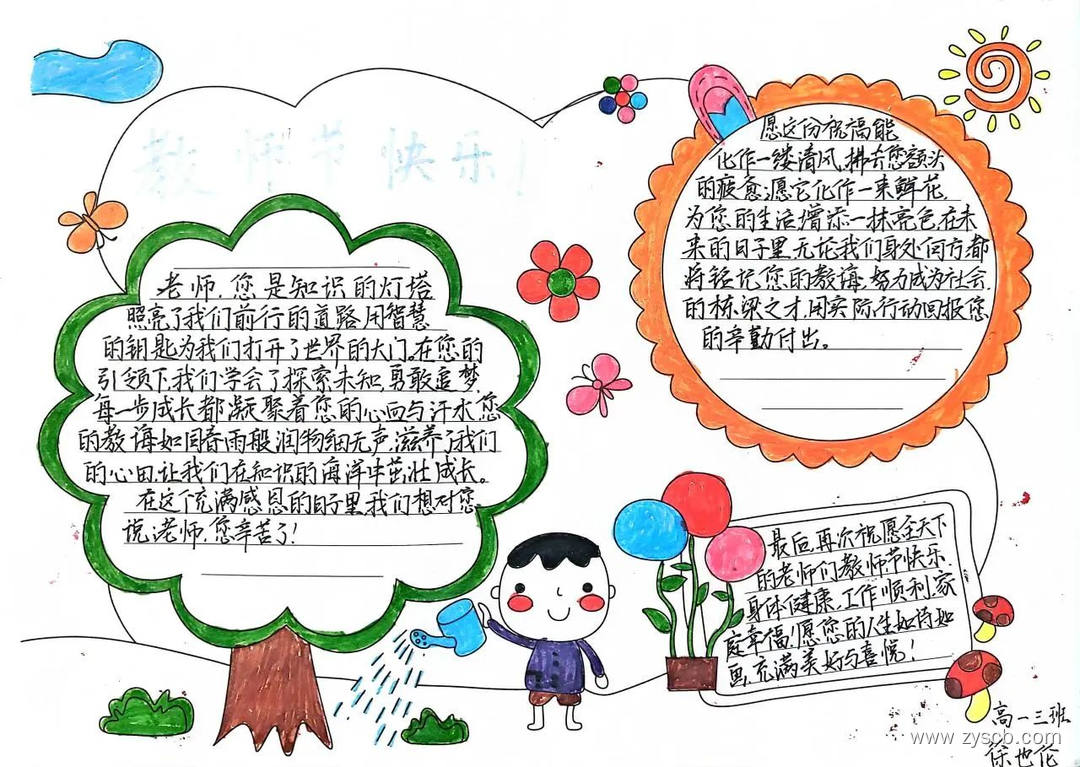 教师节快乐!
老师,您是知识的灯塔
照亮了我们前行的道路,用智慧
的钥匙为我们打开了世界的大门。在您的
引领下,我们学会了探索未知,勇敢追梦,
每一步成长都凝聚着您的心血与汗水,您
的教诲如同春雨般润物细无声,滋养了我们
的心田,让我们在知识的海洋中茁壮成长。
在这个充满感恩的日子里,我们想对您
说:老师,您辛苦了!
愿这份祝福能
化作一缕清风,拂去您额头
的疲惫;愿它化作一束鲜花,
为您的生活增添一抹亮色,在未
来的日子里,无论我们身处何方,都
将铭记您的教诲,努力成为社会
的栋梁之才,用实际行动回报您
的辛勤付出。
最后,再次祝愿全天下
的老师们教师节快乐,
身体健康,工作顺利,家
庭幸福!愿您的人生如诗如
画,充满美好与喜悦!
高一三班
www.zyscb.com
徐也伦